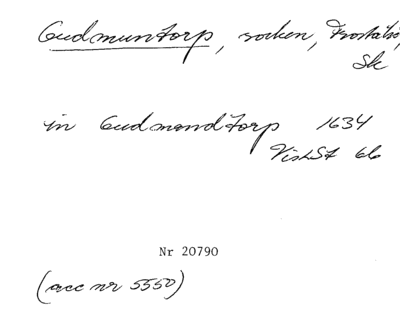 Gudmuntorp, socken, Frostahä
Sk
in Gudmondtorp 1634
VishSt 66
Nr 20790
(acc nr 5550)